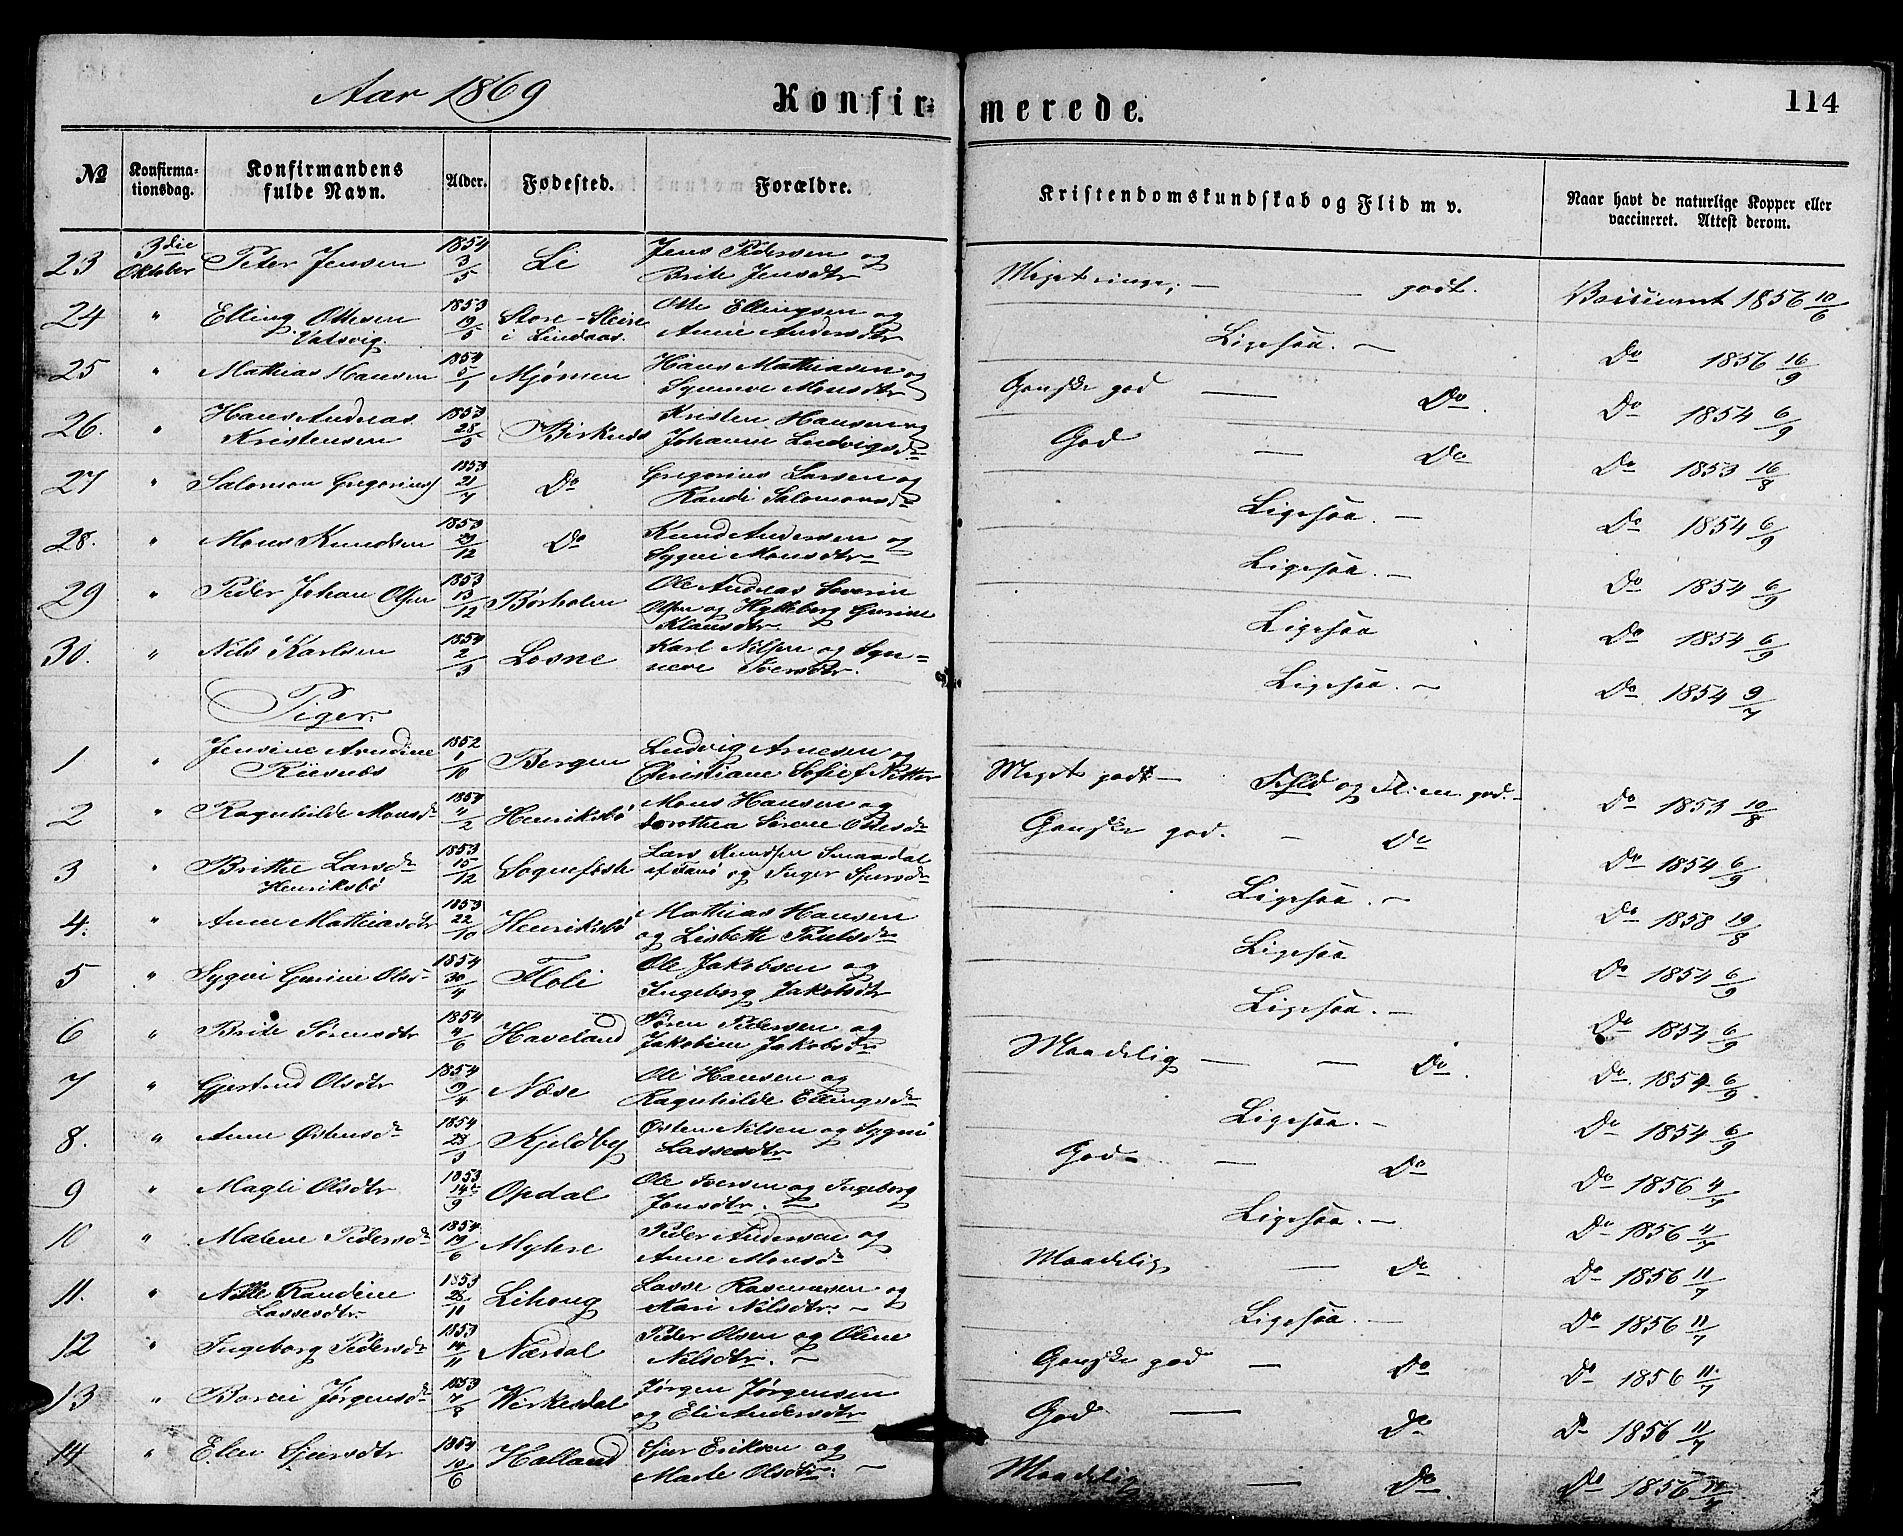 Aar 1869 Konfirmerede. 114
№ Konfirmationsdag. Konfirmandens fulde Navn. Alder. Fødested. Forældre. Kristendomskundskab og Flid m v. Naar havt de naturlige Kopper eller vaccineret. Attest derom.
23 3die Oktober Peter Jensen 1854 3/5 Li Jens Pedersen og Brite Jensdtr Meget ringe, — — godt. 1856 10/6
24 " Elling Ottesen Vatsvig. 1853 19/5 Store-Steine i Lindaas. Otte Ellingsen og Anne Andersdtr Ligesaa. — Do 1856 16/9
25 " Mathias Hansen 1854 5/1 Mjømen Hans Mathiasen og Synneve Monsdtr Ganske god — Do. Do 1854 6/9
26. " Hans Andreas Kristensen 1853 28/5 Birknæs Kristen Hansen og Johanne Ludvigsd. God — Do Do 1853 16/8
27 " Salomon Gregorius) 1853 21/7 Do Gregorius Larsen og Randi Salomonsd. Ligesaa. — Do 1854 6/9
28. " Mons Knudsen 1853 29/12 Do Knud Andersen og Sygni Monsdtr Ligesaa. — Do 1854 6/9
29 " Peder Johan Olsen 1853 13/12 Børholm Ole Andreas Severin Olsen og Hylleborg Gurine Klausdtr. Ligesaa Do 1854 6/9
30. " Nils Karlsen 1854 2/3 Losne Karl Nilsen og Synneve Iversdtr. Ligesaa. — Do 1854 9/7
Piger.
1 " Jensine Arndine Riisnæs 1852 1/10 Bergen Ludvig Arnesen og Christiane Sofie f. Netter Meget godt — Fl: god. — Do 1853 10/8
2 " Ragnhilde Monsd. 1854 4/2 Henriksbø Mons Hansen og Dorothea Sørine Ottesd. Ganske god. — Do Do 1854 6/9
3 " Brithe Larsd. Henriksbø 1853 15/12 Sognefæste Lars Knudsen Smaadal og Inger Sjursd. Ligesaa. — Do 1858 19/8
4. " Anne Mathiasdtr 1853 22/10 Henriksbø Mathias Hansen og Lisbeth Poulsd. Ligesaa Do 1854 6/9
5 " Sygni Gurine Olsd. 1854 30/4 Floli Ole Jakobsen og Ingeborg Jakobsdtr Ligesaa. — Do 1854 6/9
6 " Brite Sørensdtr 1854 4/6 Haveland Søren Pedersen og Jakobine Jakobsdtr Maadelig — — Do. Do. 1854 6/9
7 " Gjertrud Olsdtr 1854 9/4 Næse Ole Hansen og Ragnhilde Ellingsd. Ligesaa. — Do 1854 6/9
8. " Anne Østensd. 1854 28/3 Kjeldby Østen Nilsen og Sygni Lassesdtr God — Do Do 1856 4/7
9 " Magli Olsdtr 1853 14/9 Opdal Ole Iversen og Ingeborg Jonsdtr. Ligesaa. — Do 1856 4/7
10 " Malene Pedersd. 1854 19/6 Myhre Peder Andersen og Anne Monsd. Maadelig — Do Do 1856 11/7
11. " Nille Randine Lassesdtr. 1853 28/10 Lihoug Lasse Rasmusen og Kari Nilsdtr. — Ligesaa. — Do 1856 11/7
12 " Ingeborg Pedersd. 1853 14/11 Nærdal Peder Olsen og Oline Nilsdtr. — Ganske god — Do Do 1856 11/7
13 " Jørgensd. 1853 7/8 Virkesdal Jørgen Jørgensen og Eli Andersdtr God — Do Do 1856 11/7
14 " Elen Sjursdtr 1854 10/6 Halland Sjur Eriksen og Marte Olsdtr. — Maadelig — Do. Do 1856 11/7